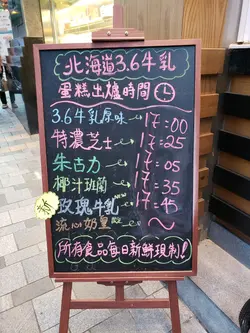 北海道3.6牛乳
蛋糕出爐時間
3.6牛乳原味→17:00
特濃芝士→17:25
朱古力→17:05
椰汁班蘭→17:35
新 玫瑰牛乳NEW→17:45
流心奶皇→~
所有食品每日新鮮現制!